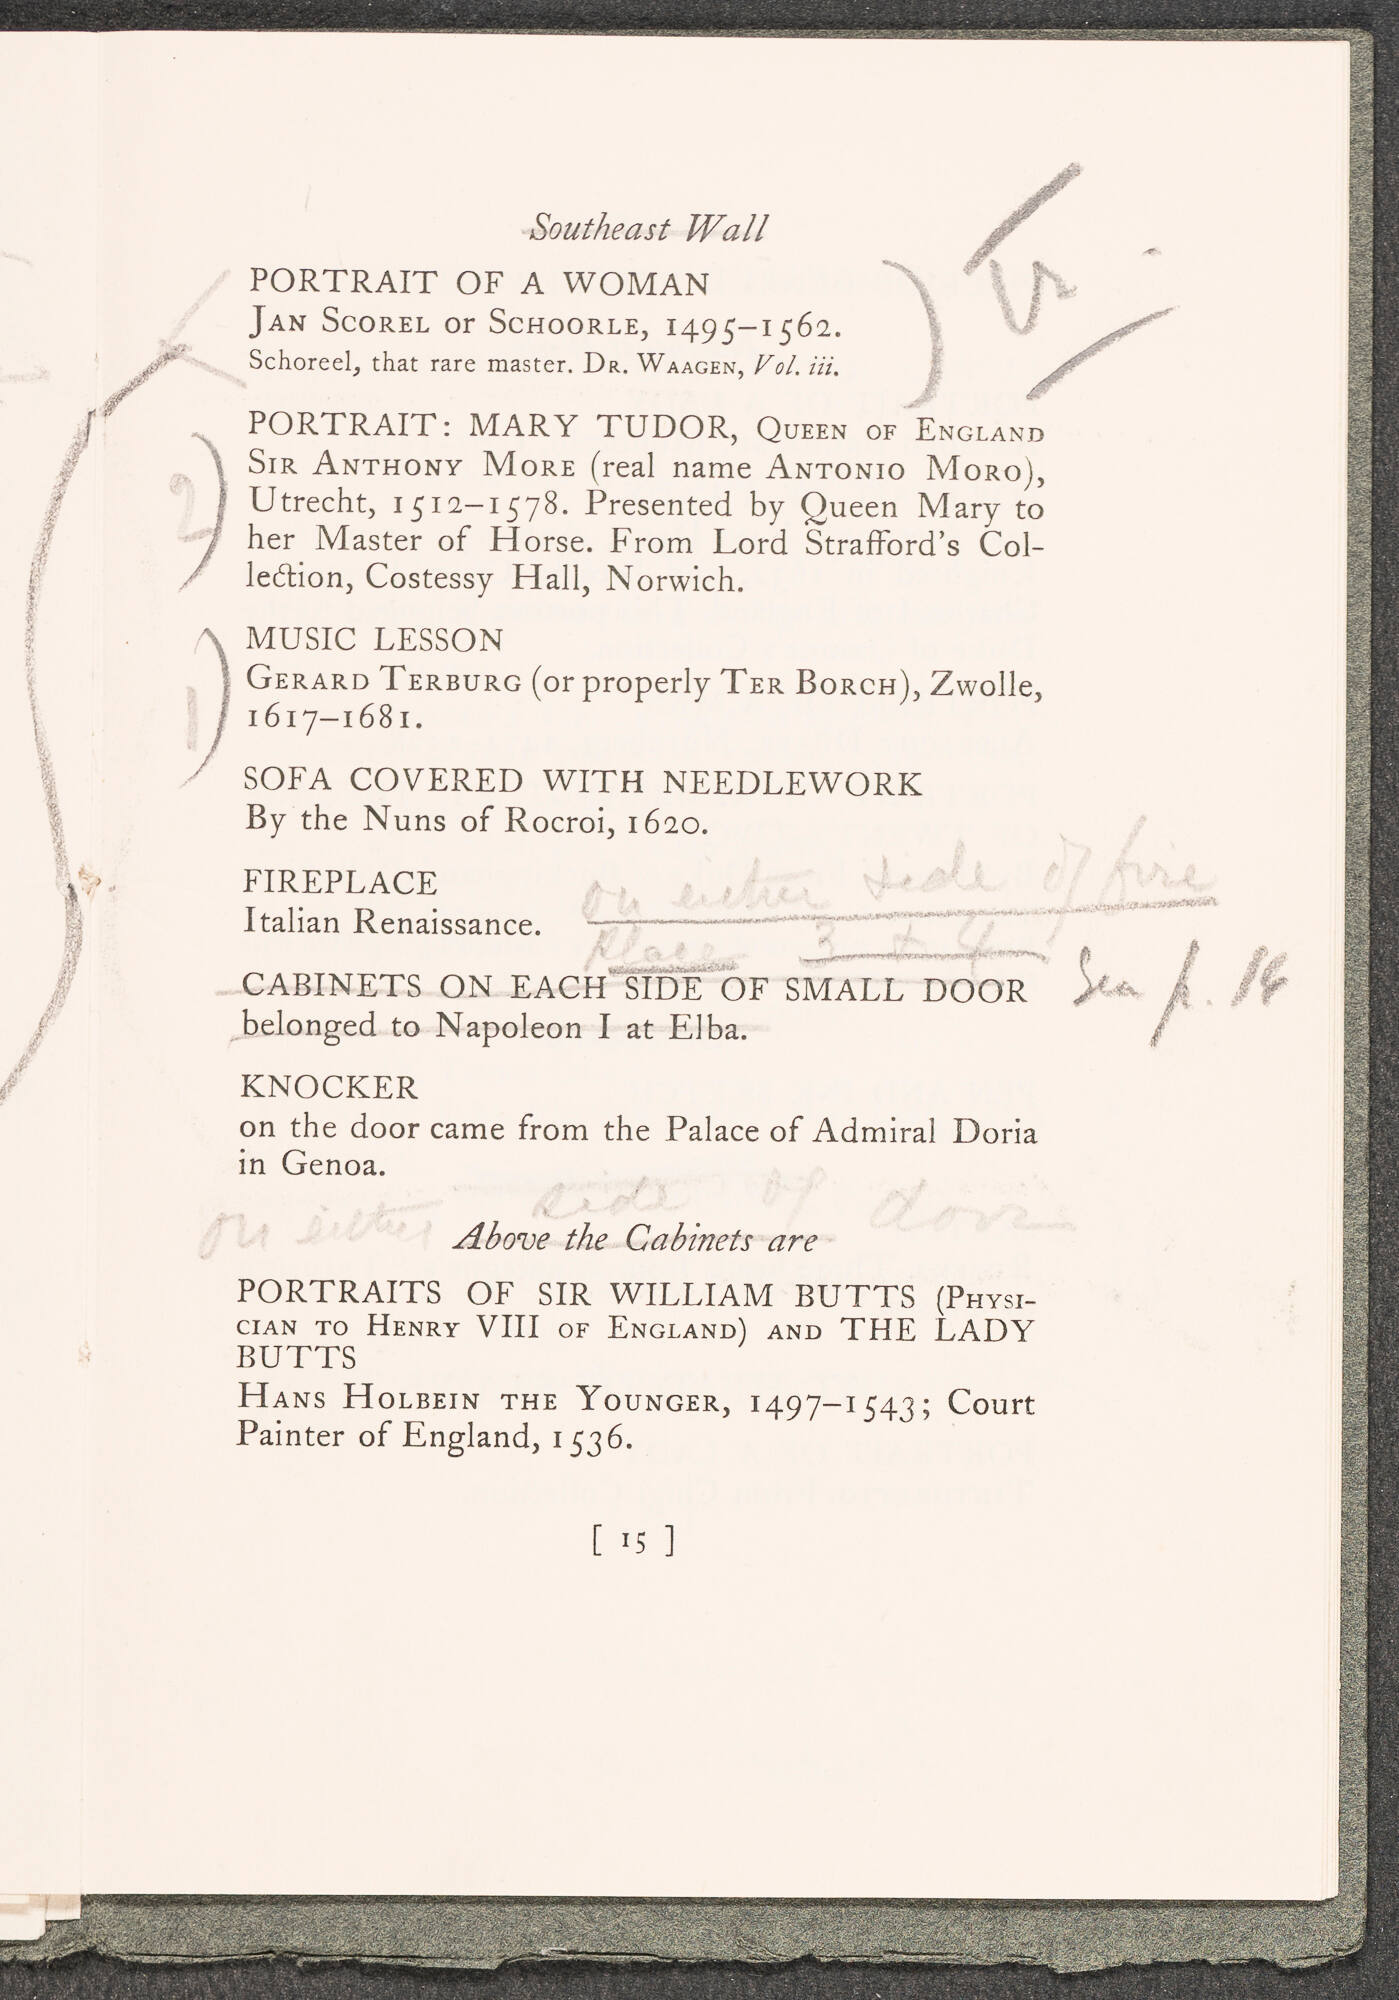 Southeast Wall
PORTRAIT OF A WOMAN
JAN SCOREL or SCHOORLE, 1495–1562.
Schoreel, that rare master. DR. WAAGEN, Vol. iii.
PORTRAIT: MARY TUDOR, QUEEN OF ENGLAND
SIR ANTHONY MORE (real name ANTONIO MORO),
2
Utrecht, 1512–1578. Presented by Queen Mary to
her Master of Horse. From Lord Strafford's Col-
lection, Costessy Hall, Norwich.
MUSIC LESSON
GERARD TERBURG (or properly TER BORCH), Zwolle,
1
1617–1681.
SOFA COVERED WITH NEEDLEWORK
By the Nuns of Rocroi, 1620.
FIREPLACE
on either side of fire
Italian Renaissance.
place 3 + 4
CABINETS ON EACH SIDE OF SMALL DOOR
See p. 16
belonged to Napoleon I at Elba.
KNOCKER
on the door came from the Palace of Admiral Doria
in Genoa.
on either side of door
Above the Cabinets are
PORTRAITS OF SIR WILLIAM BUTTS (PHYSI-
CIAN TO HENRY VIII OF ENGLAND) AND THE LADY
BUTTS
HANS HOLBEIN THE YOUNGER, 1497–1543; Court
Painter of England, 1536.
[ 15 ]